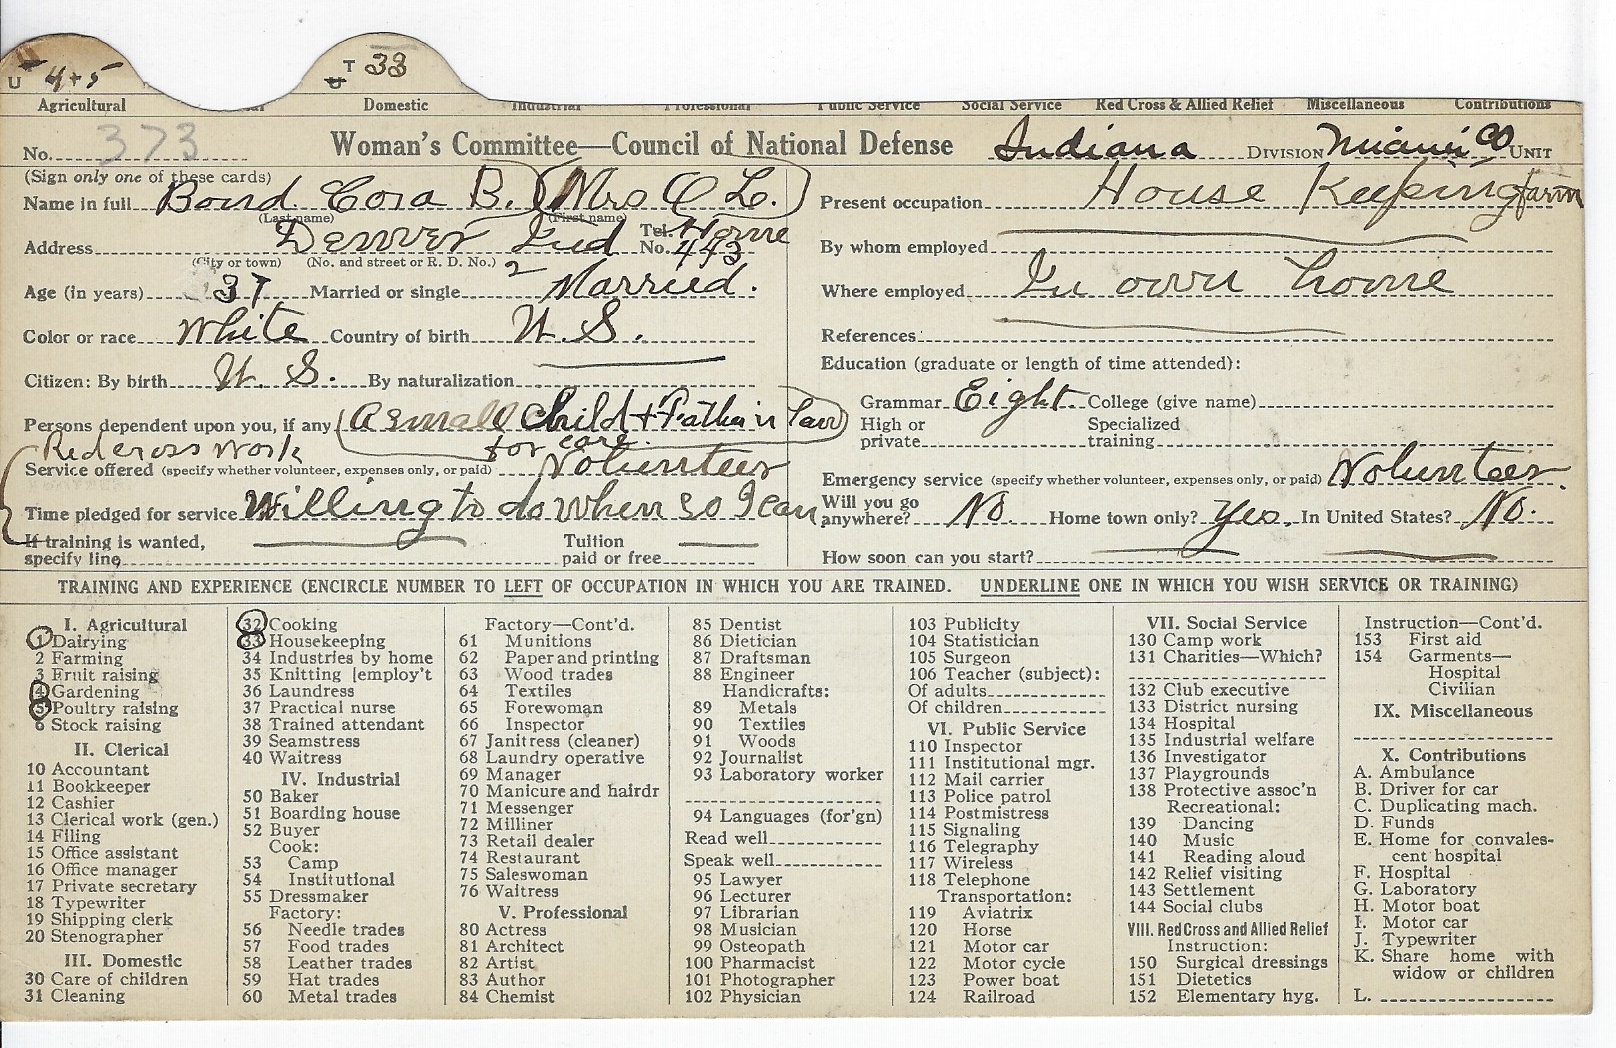 U 4+5 T U 33
Agricultural Domestic Industrial Professional Public Service Social Service Red Cross & Allied Relief Miscellaneous Contributions
No. 373 Woman's Committee—Council of National Defense Indiana DIVISION Miami Co UNIT
(Sign only one of these cards)
Name in full Bond Cora B. (Mrs O L.)
(Last name) (First name)
Address Denver Ind Tel. No. Home 443
(City or town) (No. and street or R. D. No.)
Age (in years) 37 Married or single 2 Married.
Color or race White Country of birth U. S.
Citizen: By birth U. S. By naturalization
Persons dependent upon you, if any (A small child + Father in law)
for care.
Red cross work
Service offered (specify whether volunteer, expenses only, or paid) Volunteer
Time pledged for service Willing to do when so I can
If training is wanted, specify line Tuition paid or free
Present occupation House Keeping farm
By whom employed
Where employed In own home
References:
Education (graduate or length of time attended):
Grammar Eight College (give name)
High or private Specialized training
Emergency service (specify whether volunteer, expenses only, or paid) Volunteer.
Will you go anywhere? No. Home town only? Yes. In United States? No.
How soon can you start?
TRAINING AND EXPERIENCE (ENCIRCLE NUMBER TO LEFT OF OCCUPATION IN WHICH YOU ARE TRAINED. UNDERLINE ONE IN WHICH YOU WISH SERVICE OR TRAINING)
I. Agricultural
1 Dairying
2 Farming
3 Fruit raising
4 Gardening
5 Poultry raising
6 Stock raising
II. Clerical
10 Accountant
11 Bookkeeper
12 Cashier
13 Clerical work (gen.)
14 Filing
15 Office assistant
16 Office manager
17 Private secretary
18 Typewriter
19 Shipping clerk
20 Stenographer
III. Domestic
30 Care of children
31 Cleaning
32 Cooking
33 Housekeeping
34 Industries by home
35 Knitting [employ't
36 Laundress
37 Practical nurse
38 Trained attendant
39 Seamstress
40 Waitress
IV. Industrial
50 Baker
51 Boarding house
52 Buyer
Cook:
53 Camp
54 Institutional
55 Dressmaker
Factory:
56 Needle trades
57 Food trades
58 Leather trades
59 Hat trades
60 Metal trades
Factory—Cont'd.
61 Munitions
62 Paper and printing
63 Wood trades
64 Textiles
65 Forewoman
66 Inspector
67 Janitress (cleaner)
68 Laundry operative
69 Manager
70 Manicure and hairdr
71 Messenger
72 Milliner
73 Retail dealer
74 Restaurant
75 Saleswoman
76 Waitress
V. Professional
80 Actress
81 Architect
82 Artist
83 Author
84 Chemist
85 Dentist
86 Dietician
87 Draftsman
88 Engineer
Handicrafts:
89 Metals
90 Textiles
91 Woods
92 Journalist
93 Laboratory worker
94 Languages (for'gn)
Read well
Speak well
95 Lawyer
96 Lecturer
97 Librarian
98 Musician
99 Osteopath
100 Pharmacist
101 Photographer
102 Physician
103 Publicity
104 Statistician
105 Surgeon
106 Teacher (subject):
Of adults
Of children
VI. Public Service
110 Inspector
111 Institutional mgr.
112 Mail carrier
113 Police patrol
114 Postmistress
115 Signaling
116 Telegraphy
117 Wireless
118 Telephone
Transportation:
119 Aviatrix
120 Horse
121 Motor car
122 Motor cycle
123 Power boat
124 Railroad
VII. Social Service
130 Camp work
131 Charities—Which?
132 Club executive
133 District nursing
134 Hospital
135 Industrial welfare
136 Investigator
137 Playgrounds
138 Protective assoc'n
Recreational:
139 Dancing
140 Music
141 Reading aloud
142 Relief visiting
143 Settlement
144 Social clubs
VIII. Red Cross and Allied Relief
Instruction:
150 Surgical dressings
151 Dietetics
152 Elementary hyg.
Instruction—Cont'd.
153 First aid
154 Garments—
Hospital
Civilian
IX. Miscellaneous
X. Contributions
A. Ambulance
B. Driver for car
C. Duplicating mach.
D. Funds
E. Home for convales-
cent hospital
F. Hospital
G. Laboratory
H. Motor boat
I. Motor car
J. Typewriter
K. Share home with
widow or children
L.